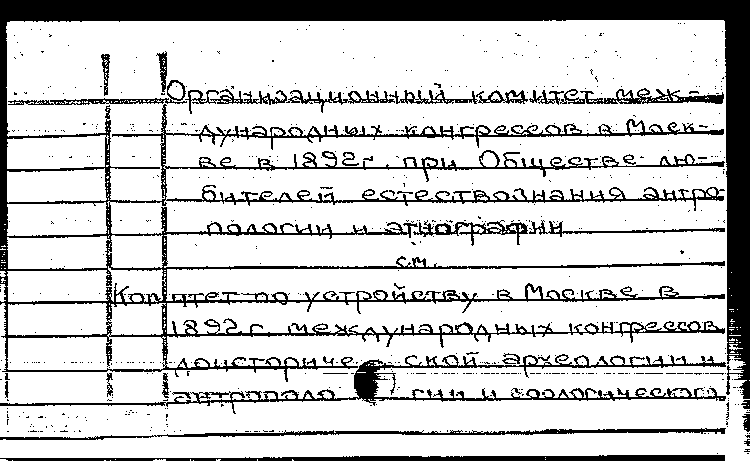 Организационный комитет меж-
дународных конгрессов в Моск-
ве в 1892г. при Обществе лю-
бителей естествознания антро-
пологии и этнографии
см.
Комитет по устройству в Москве в
1892г. международных конгрессов
доисториче- ской археологии и
антрополо гии и зоологического